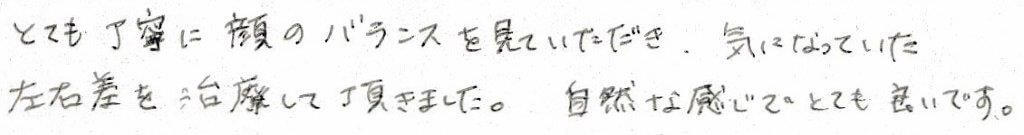 とても丁寧に顔のバランスを見ていただき、気になっていた
左右差を治療して頂きました。自然な感じでとても良いです。